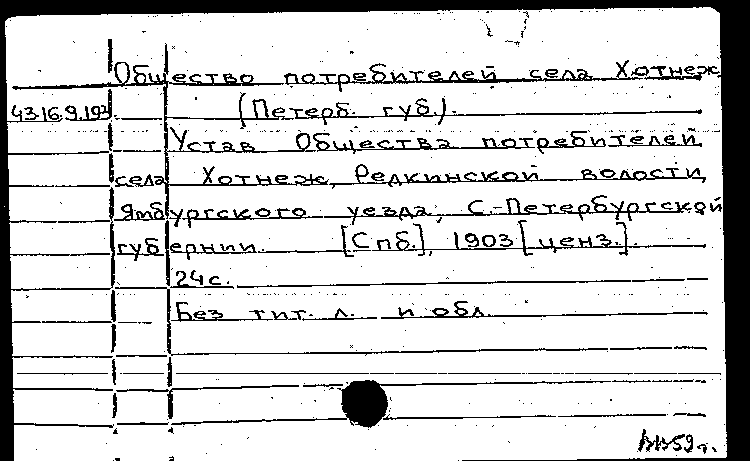 Общество потребителей села Хотнеж
43.16.9.193. (Петерб. губ.).
Устав Общества потребителей
села Хотнеж, Редкинской волости,
Ямбургского уезда, С.-Петербургской
губернии. [Спб.], 1903 [ценз.].
24 с.
Без тит. л. и обл.